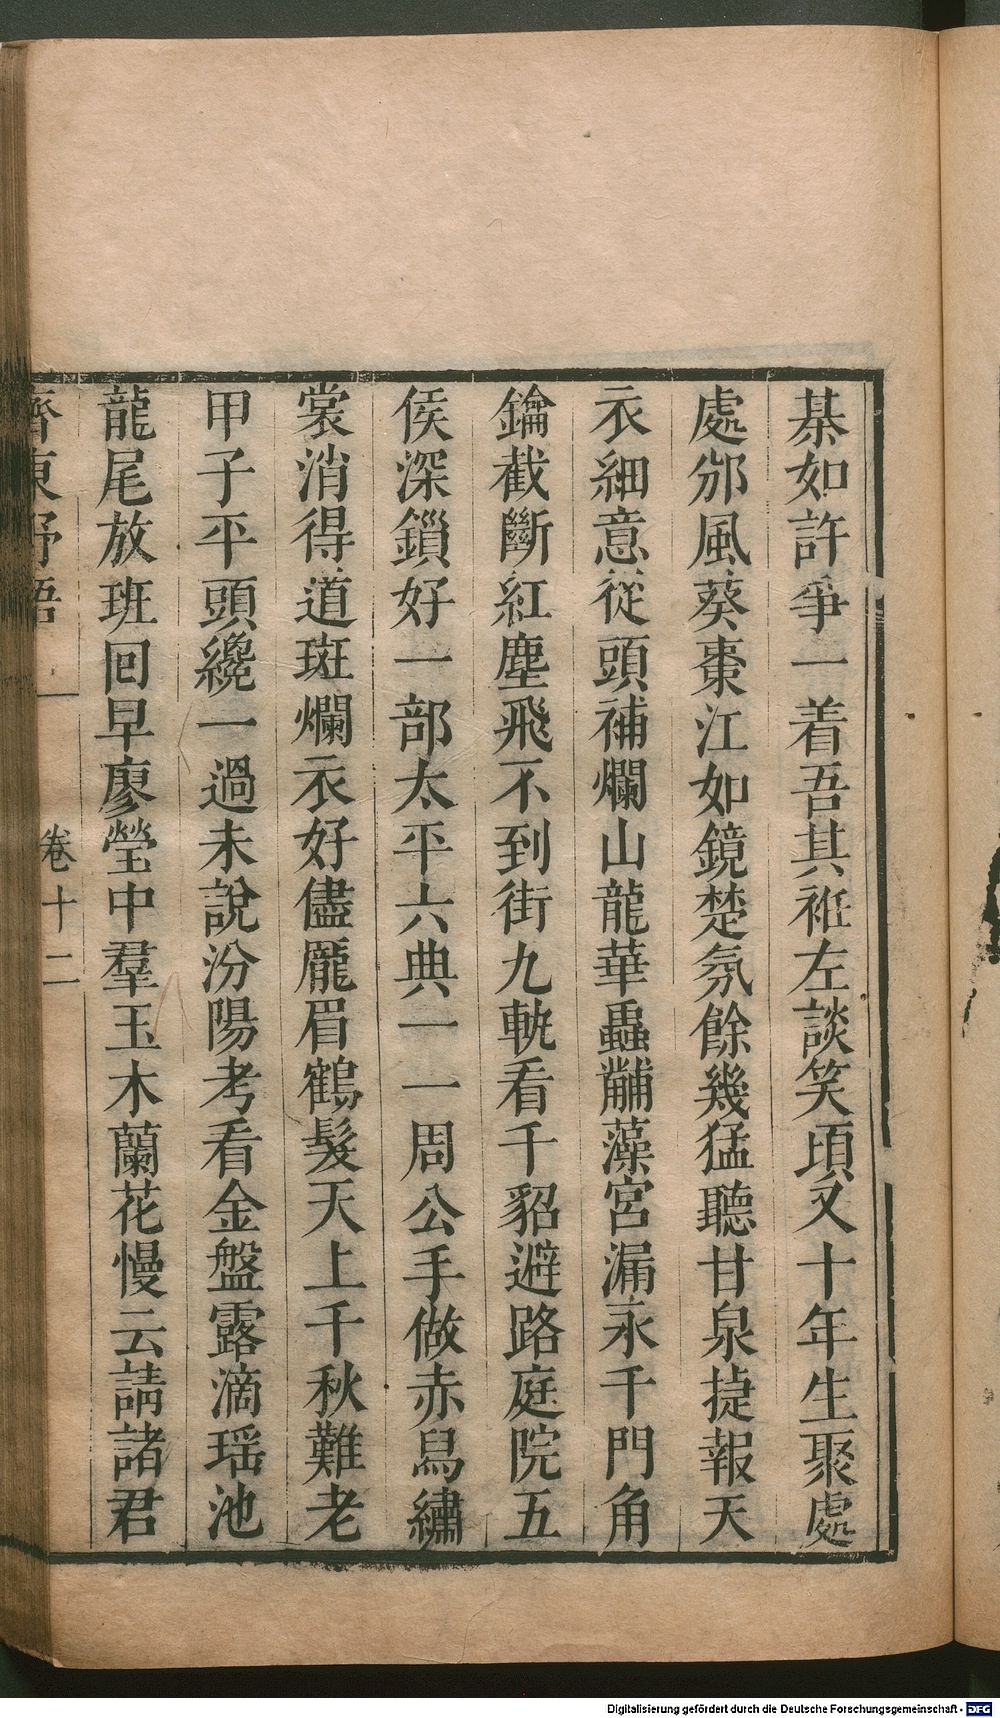 棊如許爭一着吾其袵左談笑頃又十年生聚處
處邠風葵棗江如鏡楚氛餘幾猛聽甘泉捷報天
衣細意從頭補爛山龍華蟲黼藻宮漏永千門角
鑰截斷紅塵飛不到街九軌看千貂避路庭院五
侯深鎖好一部太平六典一一周公手做赤舄繡
裳消得道斑爛衣好儘龐眉鶴髮天上千秋難老
甲子平頭纔一過未說汾陽考看金盤露滴瑶池
龍尾放班回早廖瑩中羣玉木蘭花慢云請諸君
齊東野語 卷十二
Digitalisierung gefördert durch die Deutsche Forschungsgemeinschaft - DFG